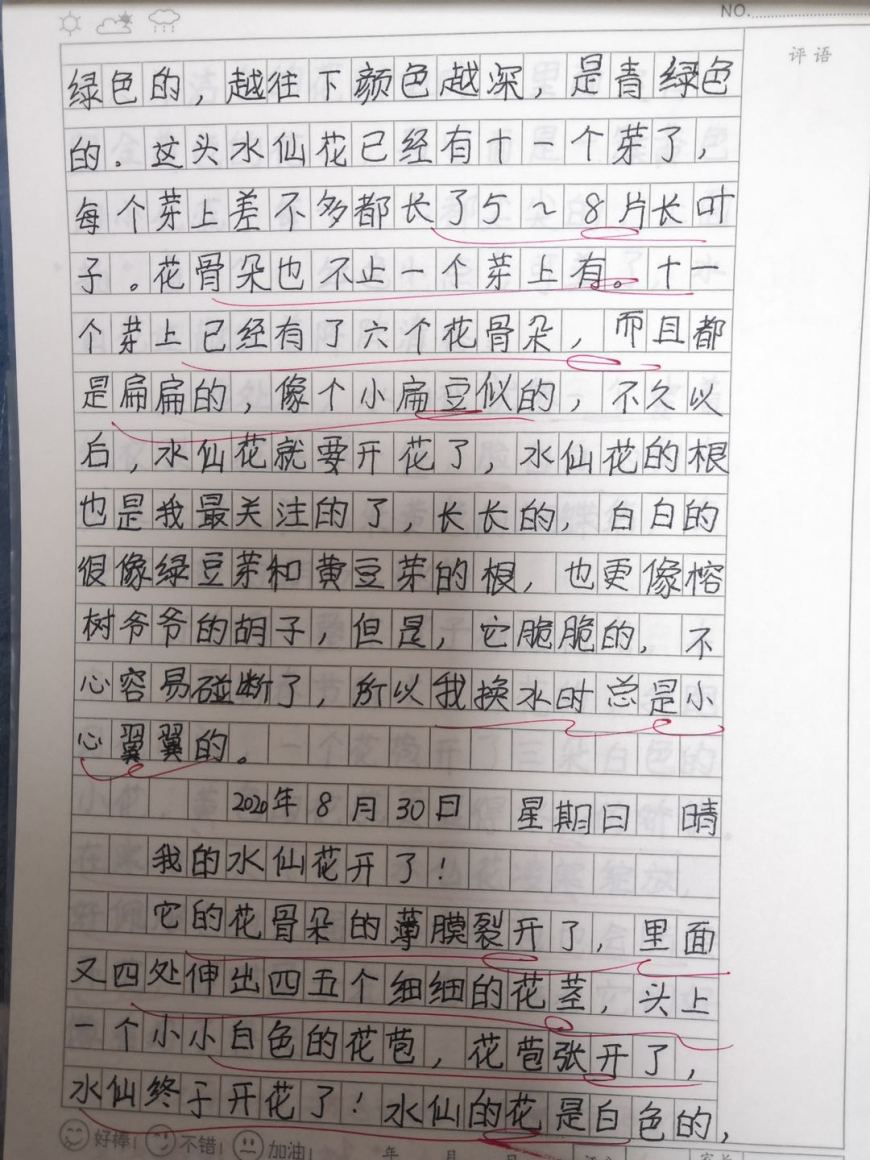 NO.
评语
绿色的，越往下颜色越深，是青绿色
的．这头水仙花已经有十一个芽了，
每个芽上差不多都长了5～8片长叶
子。花骨朵也不止一个芽上有。十一
个芽上已经有了六个花骨朵，而且都
是扁扁的，像个小扁豆似的，不久以
后，水仙花就要开花了，水仙花的根
也是我最关注的了，长长的，白白的
很像绿豆芽和黄豆芽的根，也更像榕
树爷爷的胡子，但是，它脆脆的，不
心容易碰断了，所以我换水时总是小
心翼翼的。
2020年8月30日 星期日 晴
我的水仙花开了！
它的花骨朵的薄膜裂开了，里面
又四处伸出四五个细细的花茎，头上
一个小小白色的花苞，花苞张开了，
水仙终于开花了！水仙的花是白色的，
好棒！ 不错！ 加油！ 年 月 日